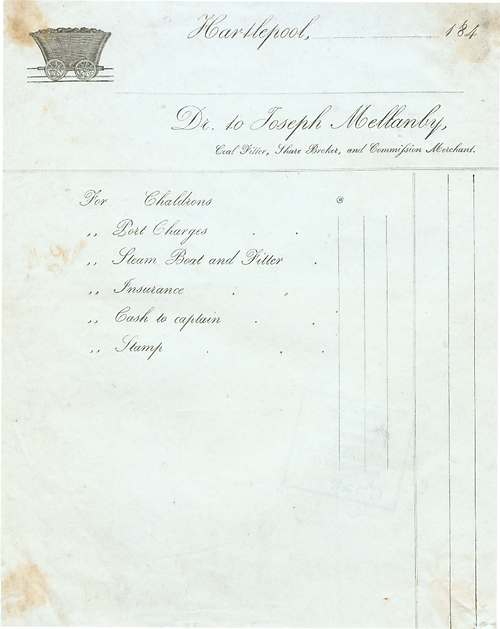 Hartlepool, 184
Dr. to Joseph Mellanby,
Coal Fitter, Share Broker, and Commiſsion Merchant.
For Chaldrons @
,, Port Charges . .
,, Steam Boat and Fitter .
,, Insurance . .
,, Cash to captain . .
,, Stamp . .